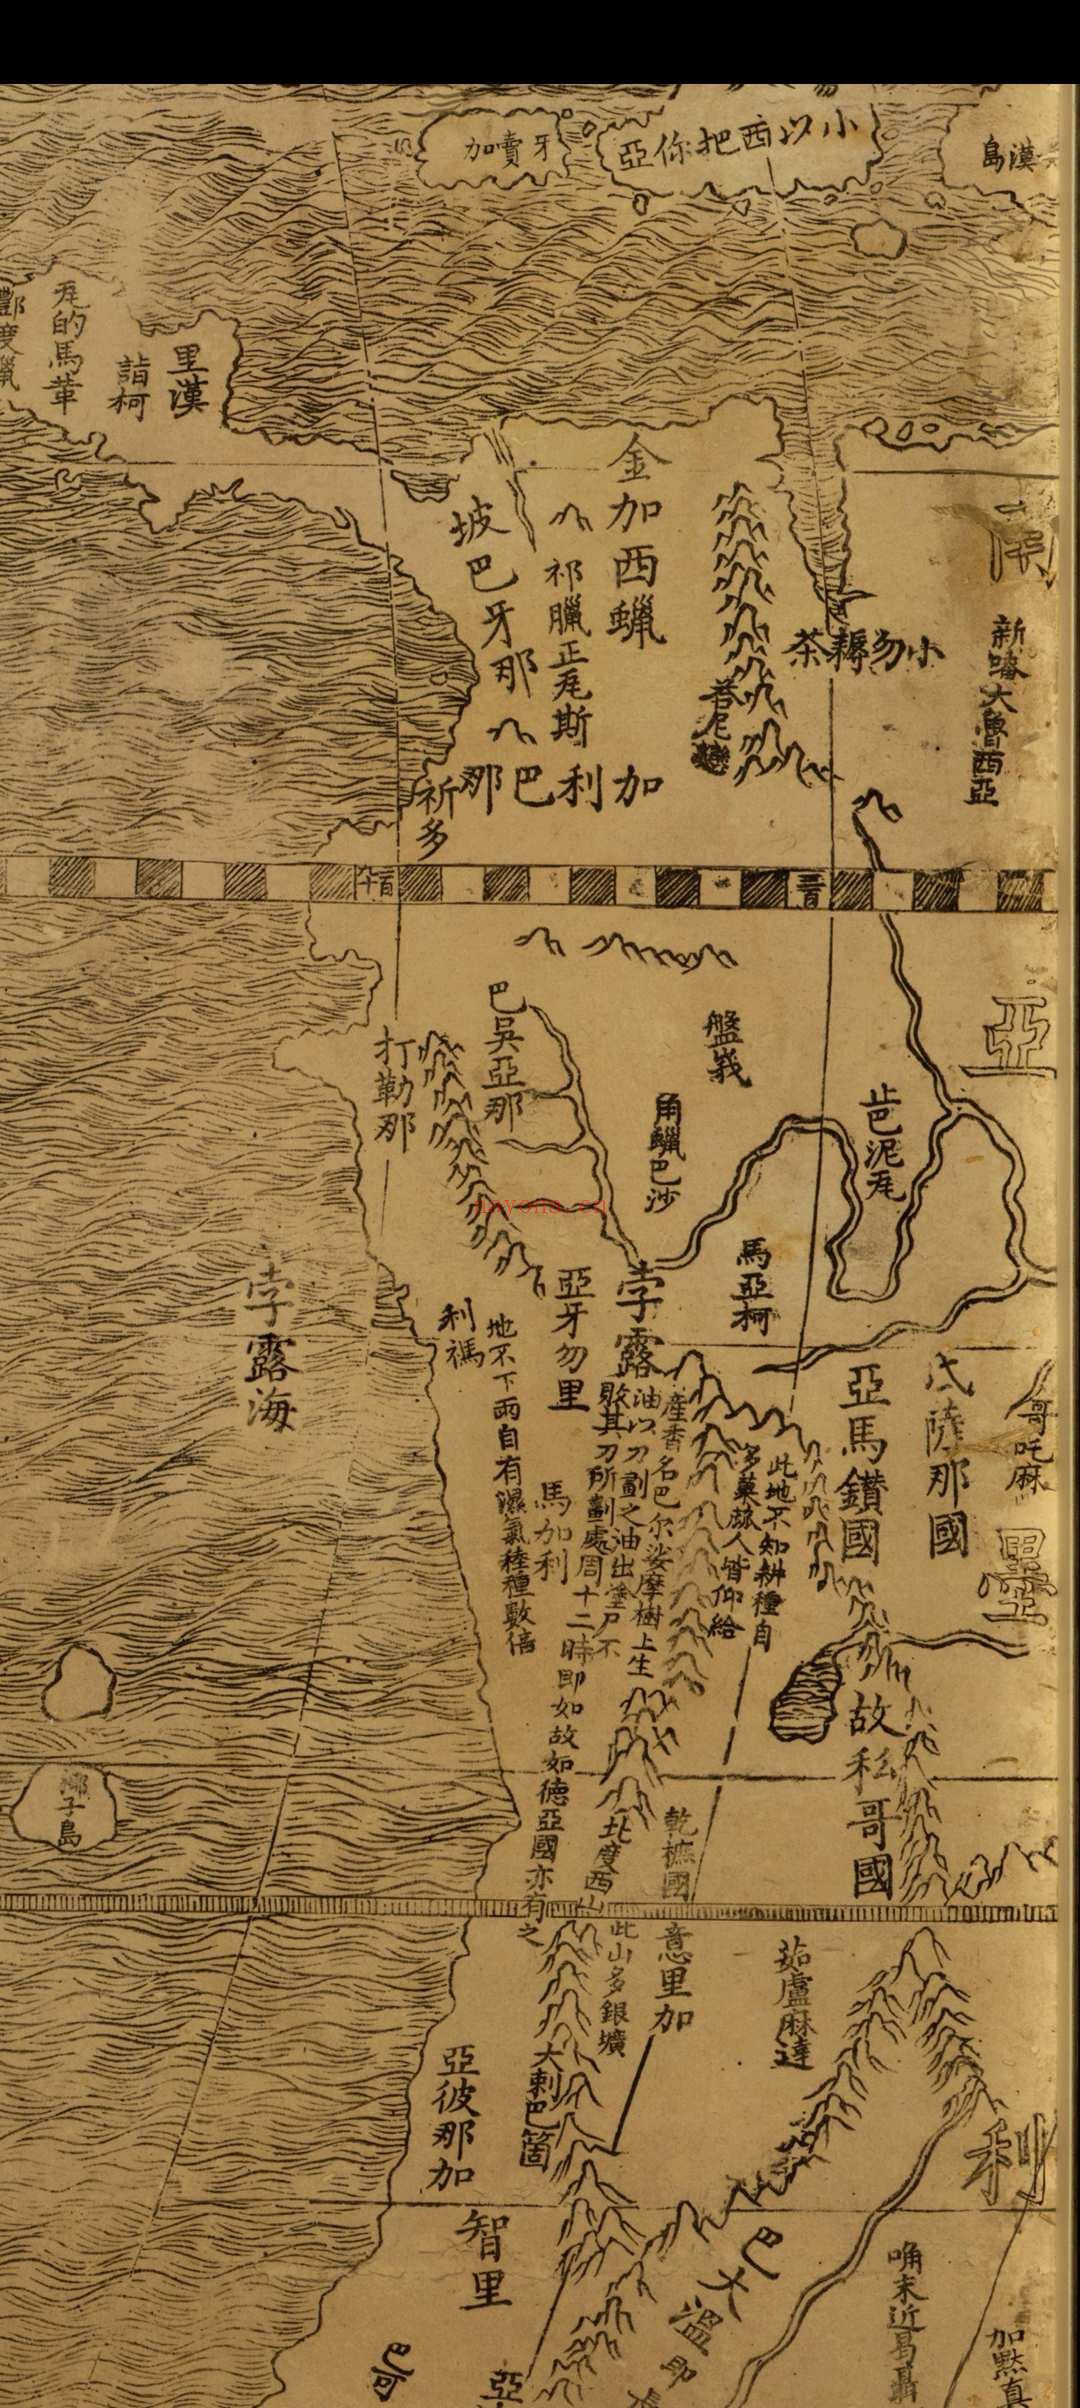 牙賣加
小以西把你亞
漢島
里漢
詣柯
金加西蠟
坡巴牙那
祁臘正尾斯
加利巴那
祈多
小勿耨茶
新嗒大魯西亞
南
亞
墨
利
巴吳亞那
打勒那
盤峩
角蠟巴沙
馬亞柯
孛露海
利禡
亞牙勿里
孛露
產香名巴尔娑摩樹上生
油以刀劃之油出塗尸不
敗其刀所劃處周十二時即如故如德亞國亦有之
地不下雨自有濕氣稑種數倍
馬加利
此地不知耕種自
多菓蓏人皆仰給
亞馬鑽國
氐薩那國
哥吒麻
故私哥國
椰子島
北度西山
此山多銀壙
乾樜國
意里加
茹盧麻達
大剌巴箇
亞彼那加
智里
巴大溫
nayona.cn